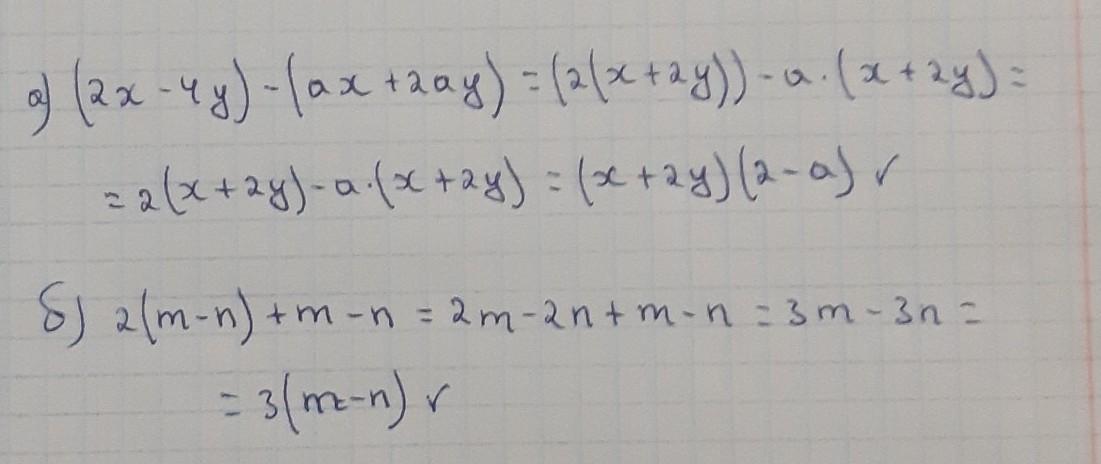 а) (2x - 4y) - (ax + 2ay) = (2(x + 2y)) - a·(x + 2y) =
= 2(x + 2y) - a·(x + 2y) = (x + 2y)(2 - a) ✓
б) 2(m - n) + m - n = 2m - 2n + m - n = 3m - 3n =
= 3(m - n) ✓